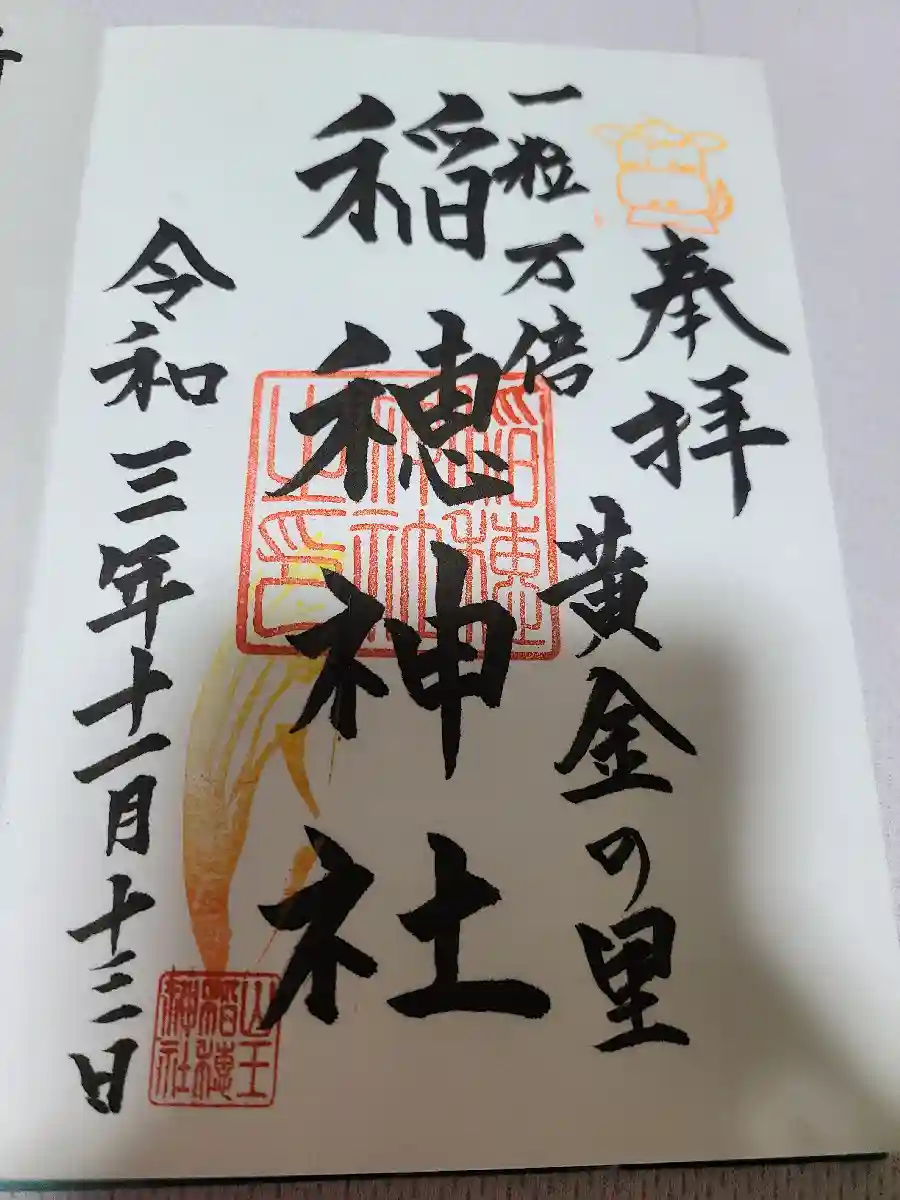 奉拝
黄金の里
一粒万倍
稲穂神社
稲穂
神社
之印
令和三年十一月十三日
山王
稲穂
神社